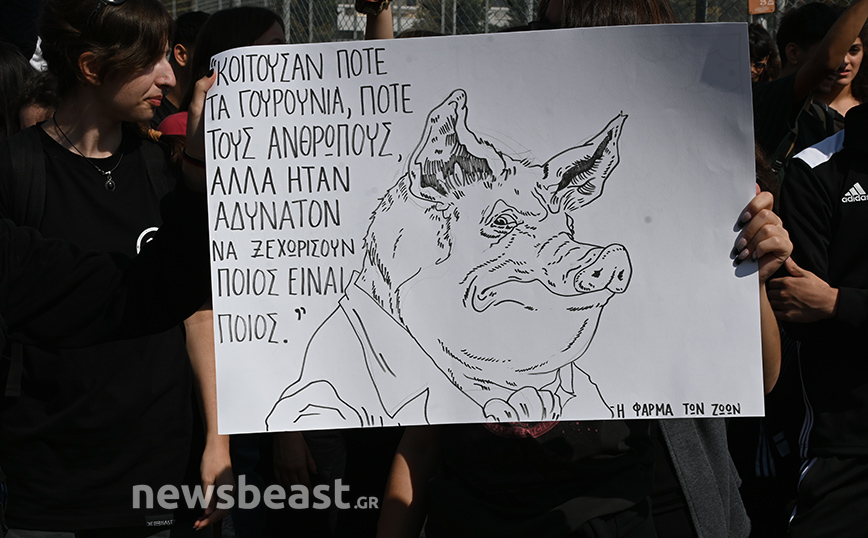 "ΚΟΙΤΟΥΣΑΝ ΠΟΤΕ
ΤΑ ΓΟΥΡΟΥΝΙΑ, ΠΟΤΕ
ΤΟΥΣ ΑΝΘΡΩΠΟΥΣ,
ΑΛΛΑ ΗΤΑΝ
ΑΔΥΝΑΤΟΝ
ΝΑ ΞΕΧΩΡΙΣΟΥΝ
ΠΟΙΟΣ ΕΙΝΑΙ
ΠΟΙΟΣ."
Η ΦΑΡΜΑ ΤΩΝ ΖΩΩΝ
adidas
newsbeast.GR